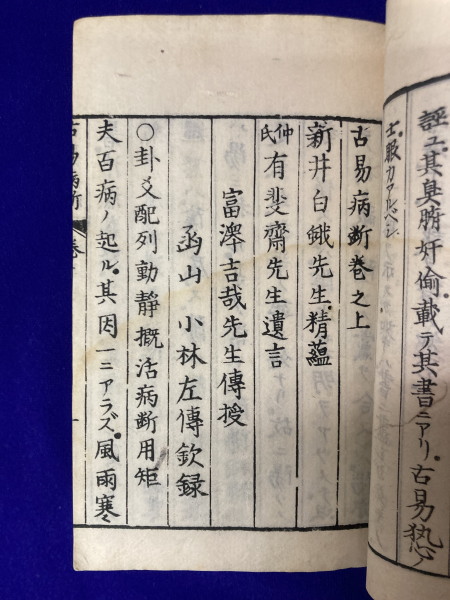 謡ユ其臭腑奸偷載テ其書ニアリ古易㷼
士、服カアルベシ
古易病断巻之上
新井白蛾先生精蘊
仲氏有斐齋先生遺言
富澤吉哉先生傳授
函山 小林左傳欽録
〇卦爻配列動静概活病断用矩
夫百病ノ起ル其因一ニアラズ風雨寒
古易病断 巻上